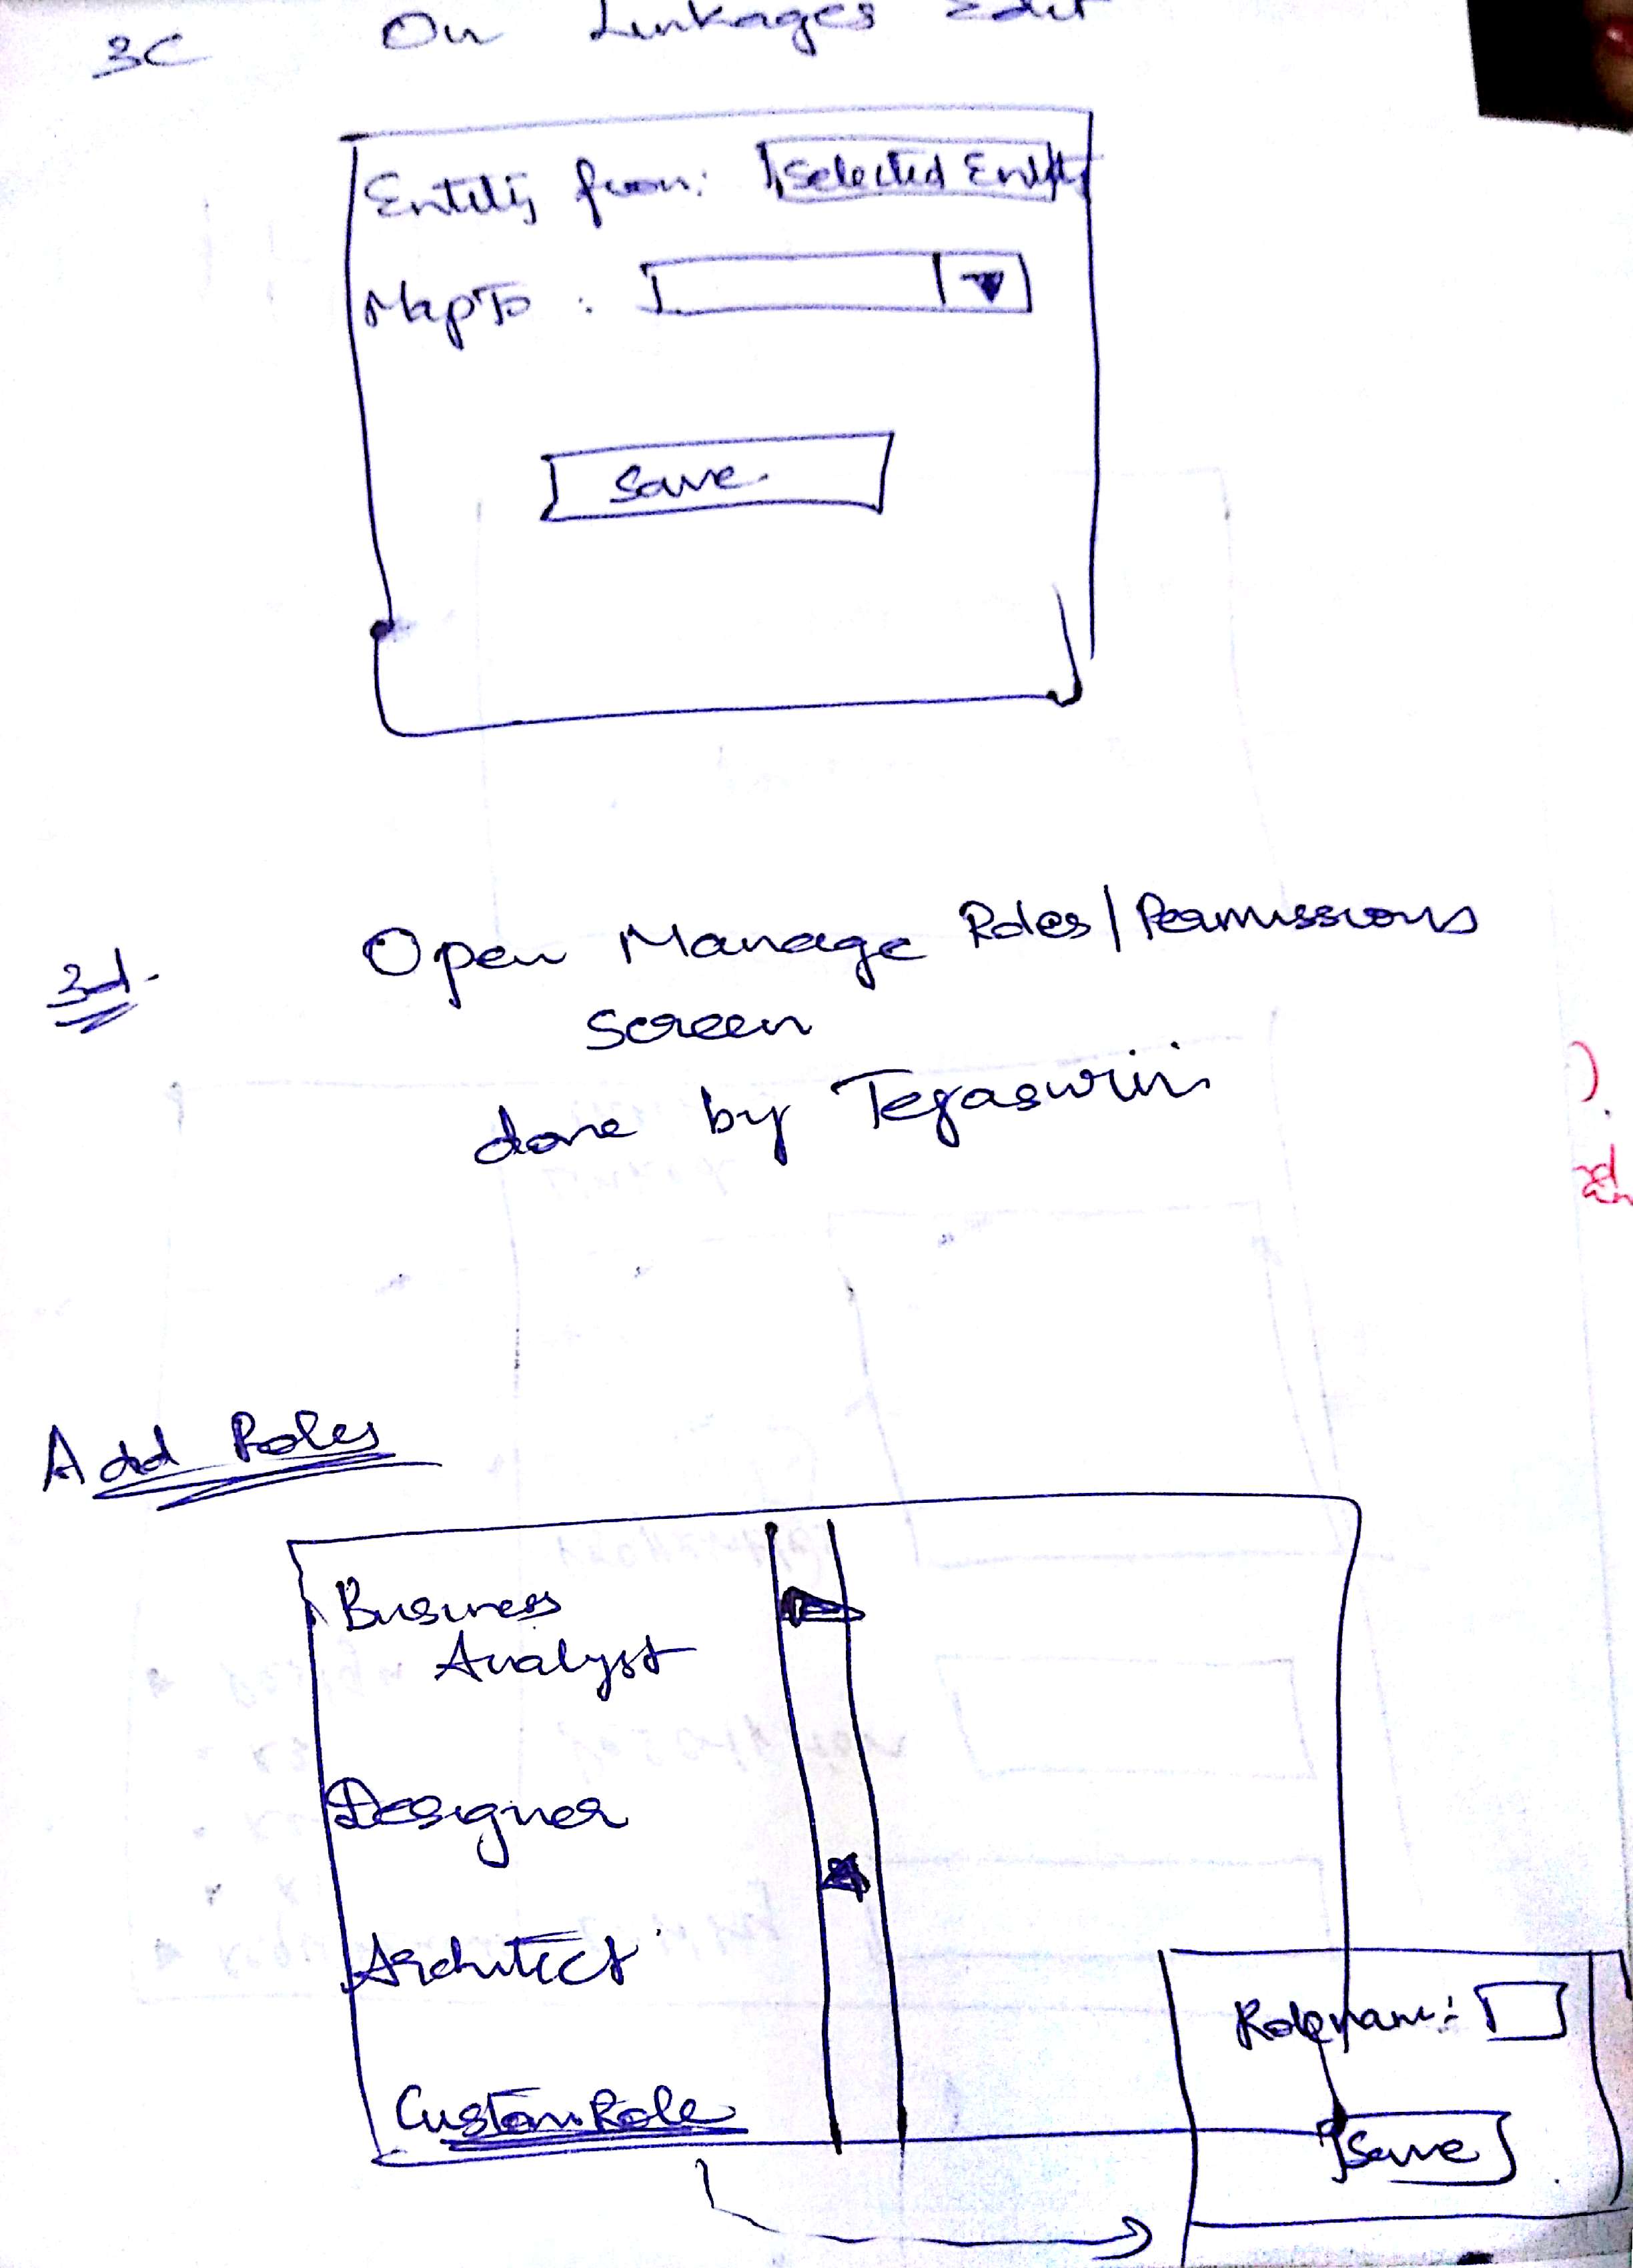 3C On Linkages Edit
Entity from: Selected Entity
MapTo :
Save
3d. Open Manage Roles/Permissions
Screen
done by Tejaswini
Add Roles
Business
Analyst
Designer
Architect
CustomRole
Rolename:
Save